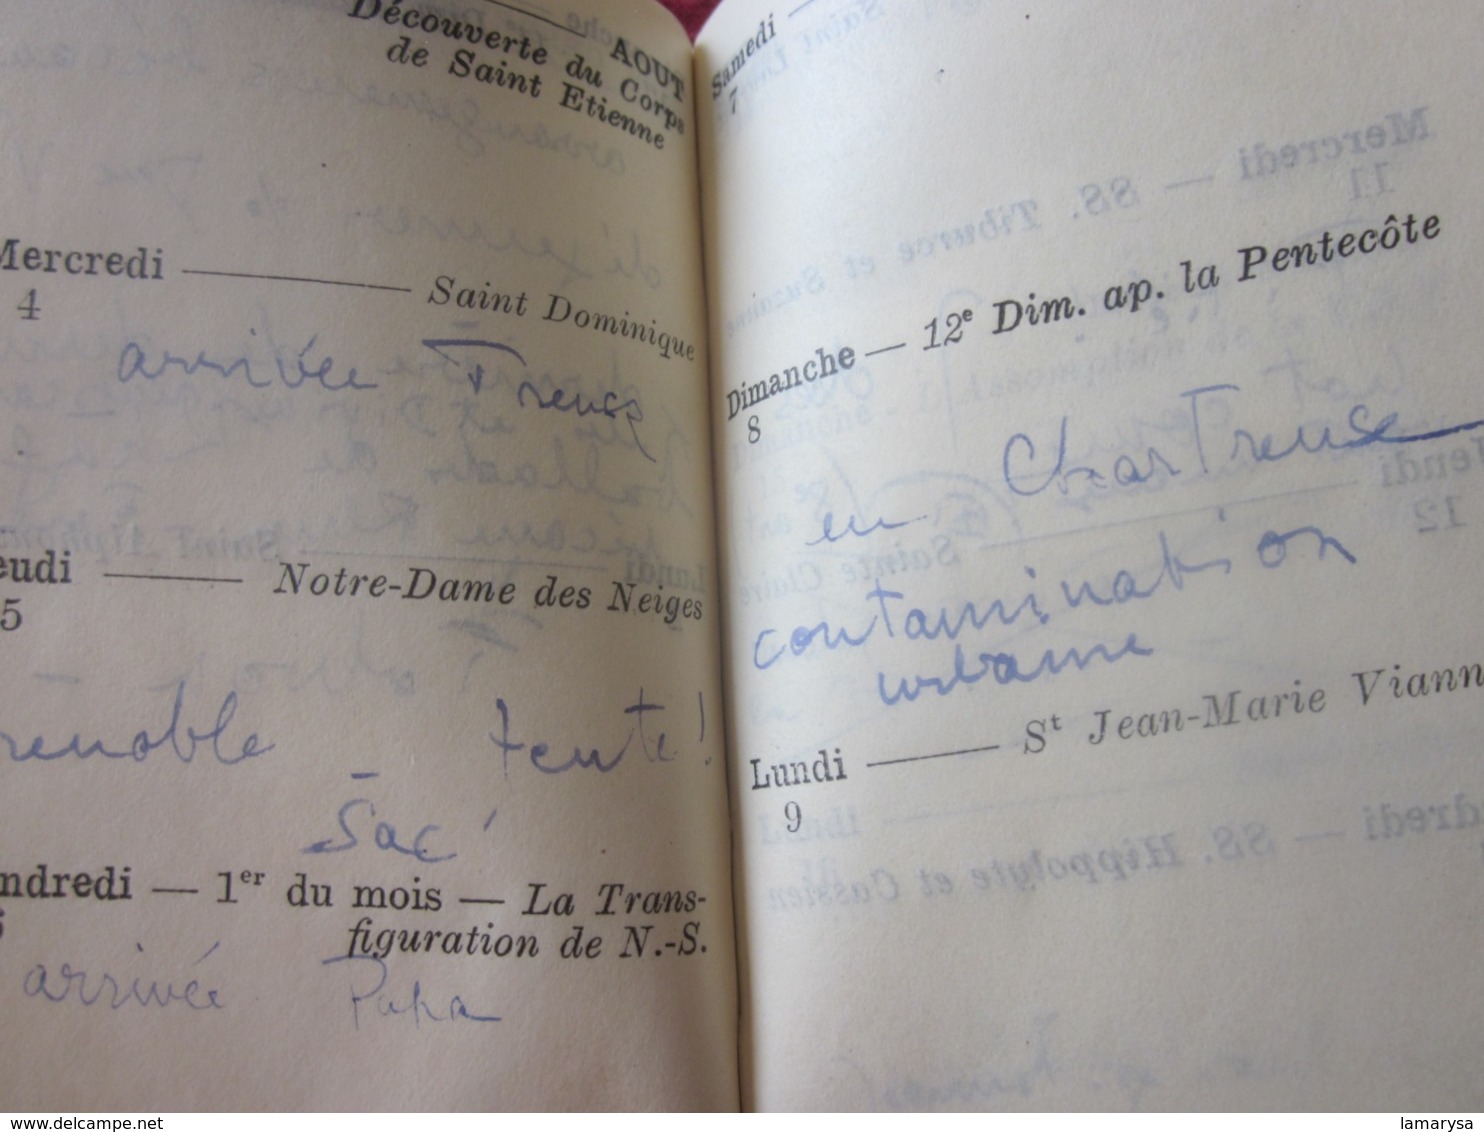 AOUT
Découverte du Corps
de Saint Etienne
Mercredi — Saint Dominique
4
arrivée
eudi — Notre-Dame des Neiges
5
renoble tente !
Sac
ndredi — 1er du mois — La Trans-
figuration de N.-S.
arrivée Papa
Samedi
7
Dimanche — 12e Dim. ap. la Pentecôte
8
en Chartreuse
contamination
urbaine
Lundi — St Jean-Marie Viann
9
delcampe.net
lamarysa